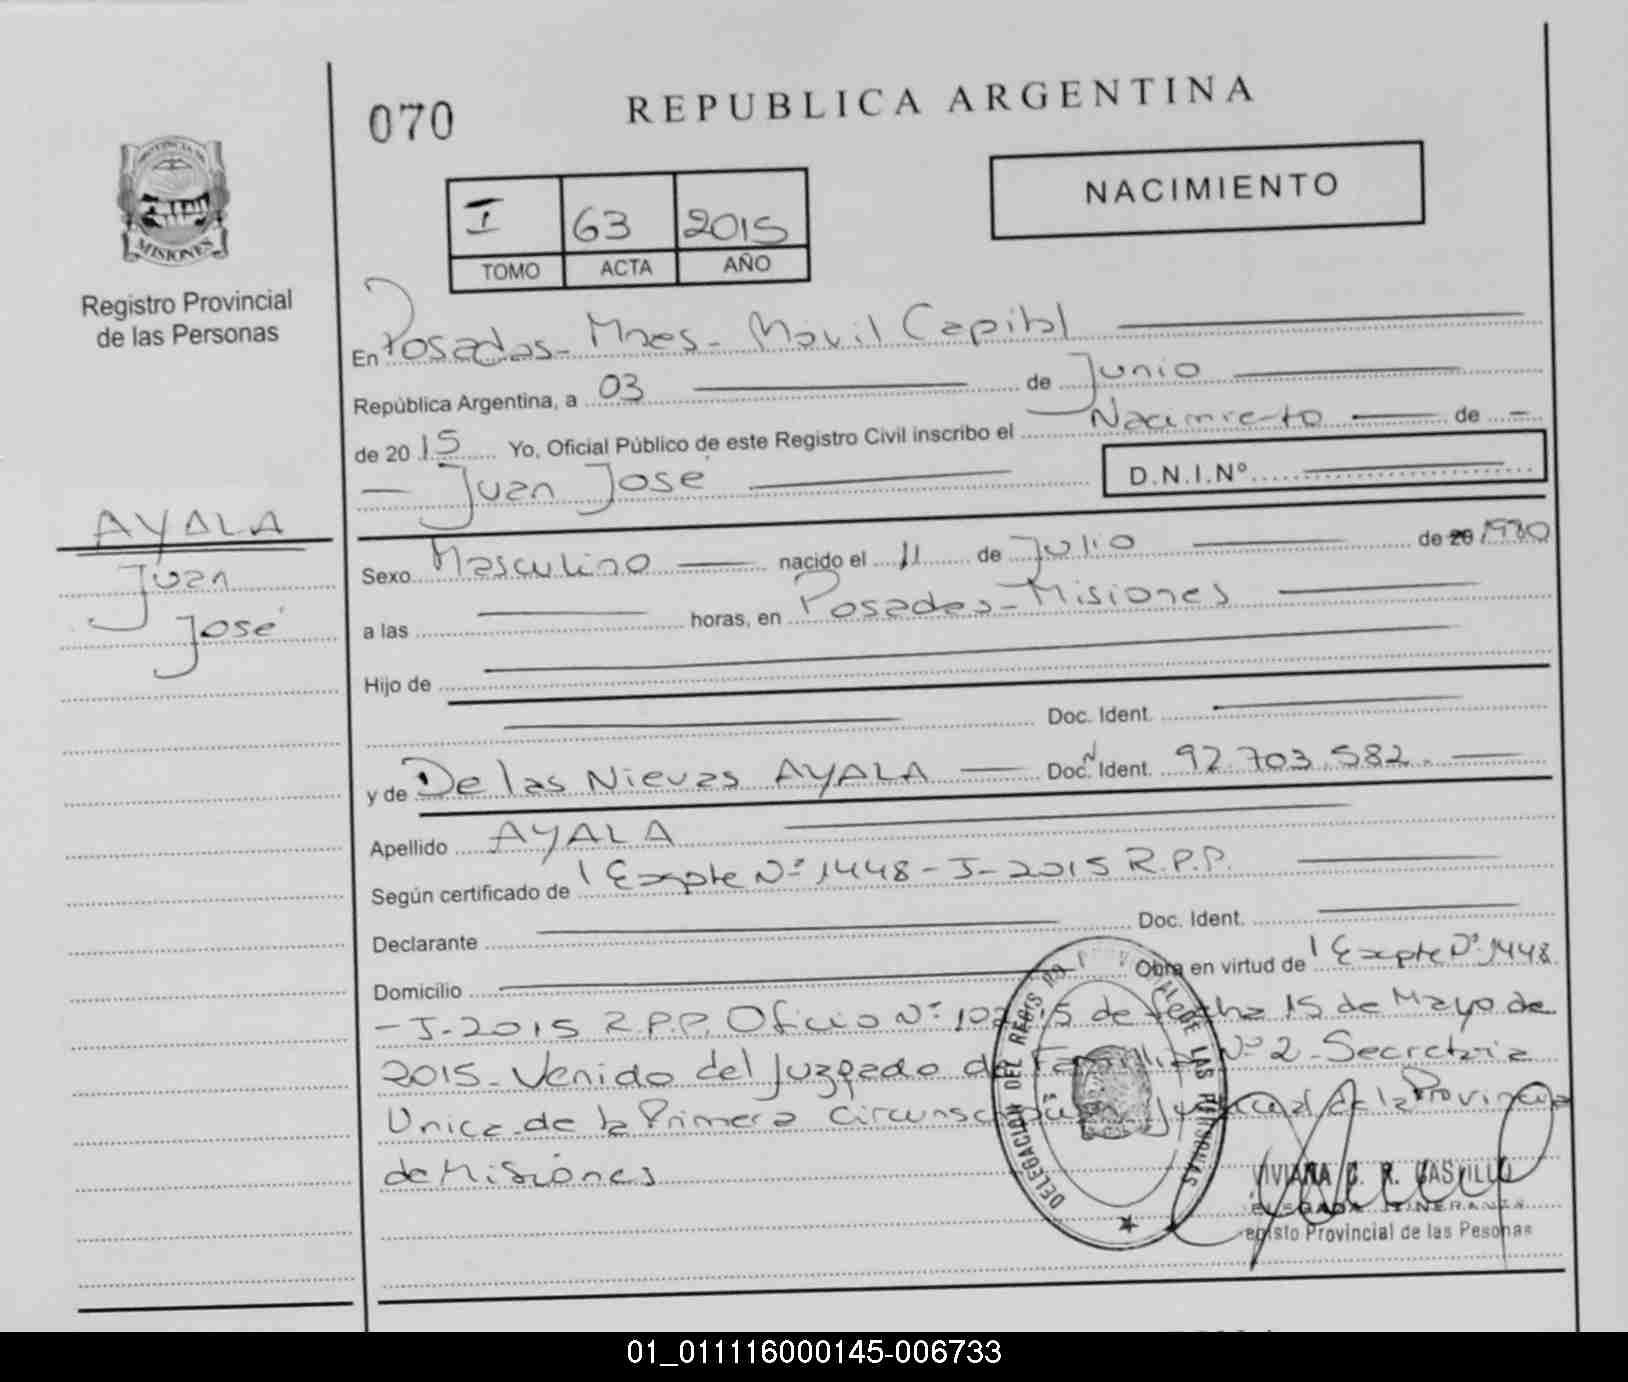 070
REPUBLICA ARGENTINA
PROVINCIA DE
MISIONES
Registro Provincial
de las Personas
I 63 2015
TOMO ACTA AÑO
NACIMIENTO
En Posadas - Mnes - Móvil Capital
República Argentina, a 03 de Junio
de 2015 Yo, Oficial Público de este Registro Civil inscribo el Nacimiento de -
Juan José D.N.I.Nº
AYALA
Juan
José
Sexo Masculino nacido el 11 de Julio de 20 1980
a las horas, en Posadas - Misiones
Hijo de
Doc. Ident.
y de De las Nieves AYALA Doc. N Ident. 92.703.582.
Apellido AYALA
Según certificado de Expte Nº 1448 - J - 2015 R.P.P.
Declarante Doc. Ident.
Domicilio Obra en virtud de Expte Nº 1448
- J - 2015 R.P.P. Oficio Nº de fecha 15 de Mayo de
2015 - Venido del Juzgado de Familia Nº 2 - Secretaria
Unica de la Primera Circunscripción Judicial de la Provincia
de Misiones
DELEGACION DEL REGISTRO PROVINCIAL DE LAS PERSONAS
VIVIANA C. R. CASTILLO
DELEGADA ITINERANTE
Registo Provincial de las Pesonas
01_011116000145-006733